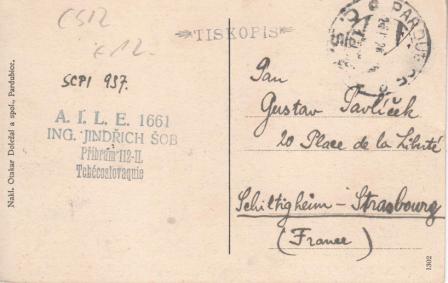 CS12
€12.
*TISKOPIS*
PARDUBICE
SCPI 937.
A. I. L. E. 1661
ING. JINDŘICH ŠOB
Příbram 112-II.
Tchécoslovaquie
Pan
Gustav Pavlíček
20 Place de la Liberté
Schiltigheim - Strasbourg
(France)
Nakl. Otakar Doležal a spol., Pardubice.
1302